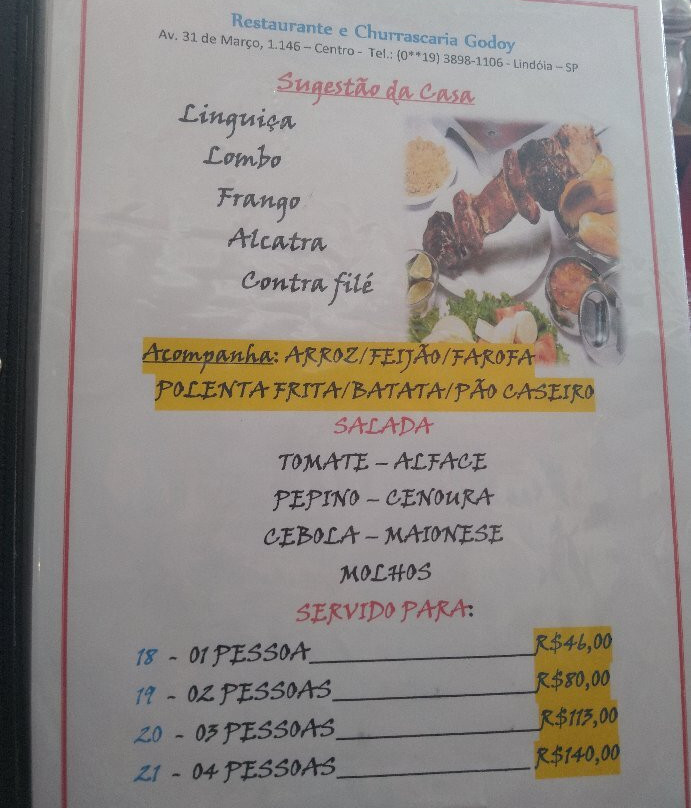 Restaurante e Churrascaria Godoy
Av. 31 de Março, 1.146 – Centro - Tel.: (0**19) 3898-1106 - Lindóia – SP
Sugestão da Casa
Linguiça
Lombo
Frango
Alcatra
Contra filé
Acompanha: ARROZ/FEIJÃO/FAROFA
POLENTA FRITA/BATATA/PÃO CASEIRO
SALADA
TOMATE – ALFACE
PEPINO – CENOURA
CEBOLA – MAIONESE
MOLHOS
SERVIDO PARA:
18 - 01 PESSOA R$46,00
19 - 02 PESSOAS R$80,00
20 - 03 PESSOAS R$113,00
21 - 04 PESSOAS R$140,00